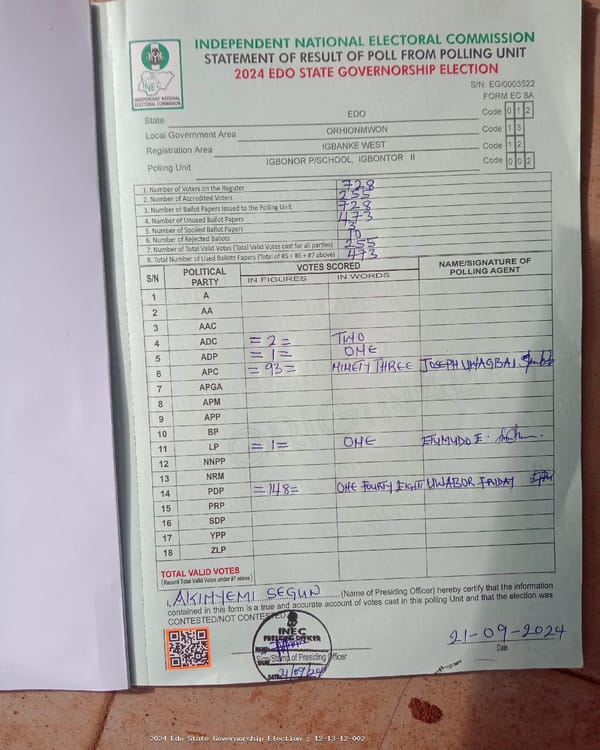 INDEPENDENT NATIONAL ELECTORAL COMMISSION
STATEMENT OF RESULT OF POLL FROM POLLING UNIT
2024 EDO STATE GOVERNORSHIP ELECTION
INEC
INDEPENDENT NATIONAL ELECTORAL COMMISSION
S/N: EG/0003522
FORM EC 8A
State EDO Code 0 1 2
Local Government Area ORHIONMWON Code 1 3
Registration Area IGBANKE WEST Code 1 2
Polling Unit IGBONOR P/SCHOOL, IGBONTOR II Code 0 0 2
1. Number of Voters on the Register 728
2. Number of Accredited Voters 255
3. Number of Ballot Papers Issued to the Polling Unit 728
4. Number of Unused Ballot Papers 473
5. Number of Spoiled Ballot Papers 3
6. Number of Rejected Ballots 10
7. Number of Total Valid Votes (Total Valid Votes cast for all parties) 255
8. Total Number of Used Ballots Papers (Total of #5 + #6 + #7 above) 473
S/N POLITICAL PARTY VOTES SCORED NAME/SIGNATURE OF POLLING AGENT
IN FIGURES IN WORDS
1 A
2 AA
3 AAC
4 ADC =2= TWO
5 ADP =1= ONE
6 APC =93= NINETY THREE JOSEPH UWAGBAI
7 APGA
8 APM
9 APP
10 BP
11 LP =1= ONE
12 NNPP
13 NRM
14 PDP =148= ONE FOURTY EIGHT UWABOR FRIDAY
15 PRP
16 SDP
17 YPP
18 ZLP
TOTAL VALID VOTES
(Record Total Valid Votes under #7 above)
I, AKINYEMI SEGUN (Name of Presiding Officer) hereby certify that the information
contained in this form is a true and accurate account of votes cast in this polling Unit and that the election was
CONTESTED/NOT CONTESTED
INEC
PRESIDING OFFICER
Sign/Stamp of Presiding Officer
DATE 21/09/24
21-09-2024
Date
2024 Edo State Governorship Election : 12-13-12-002